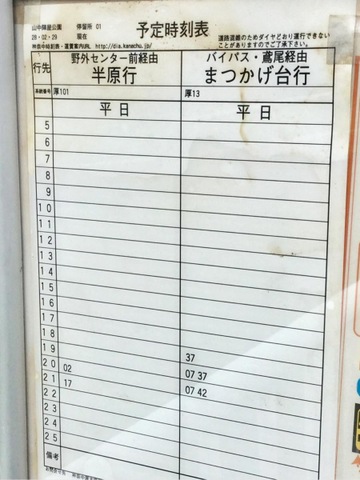 山中陣屋公園 停留所 01
28-02-29 現在
予定時刻表
道路混雑のためダイヤどおり運行できない
ことがありますのでご了承下さい。
神奈中時刻表・運賃案内URL http://dia.kanachu.jp/
行先 野外センター前経由 半原行 バイパス・鳶尾経由 まつかげ台行
系統番号 厚101 厚13
平日 平日
5
6
7
8
9
10
11
12
13
14
15
16
17
18
19 37
20 02 07 37
21 17 07 42
22
23
24
25
備考